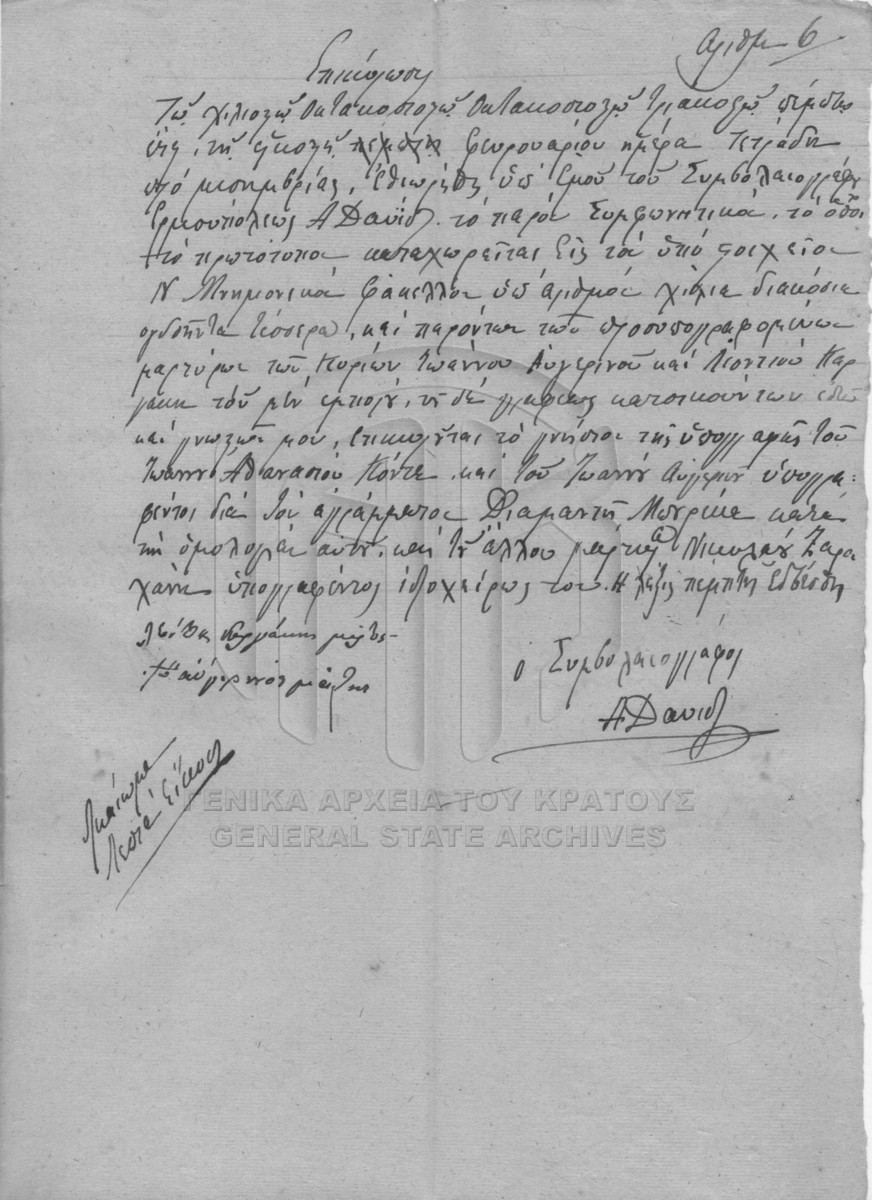 Αριθμ 6
Επικύρωση
Τῷ χιλιοστῷ Οκτακοσιοστῷ Οκτακοσιοστῷ τριακοστῷ πέμπτῳ
έτει, τῇ εἰκοστῇ πεμπτῃ φευρουαρίου ημέρα τετράδη
πρό μεσημβρίας, ἐθεωρήθη ὑπ' Εμού του Συμβολαιογράφου
Ερμουπόλεως ΑΔαυίδ το παρόν Συμφωνητικόν, το ὁποῖον
τό πρωτότυπον καταχωρεῖται Εἰς τόν ὑπό στοιχεῖον
Ν Μνημονικόν φάκελλον ὑπ' ἀριθμόν χίλια διακόσια
ογδοήντα τέσσερα, καί παρόντων των προσυπογραφομένων
μαρτύρων των Κυρίων Ἰωάννου Αὐγερινοῦ καί Λεοντίου Καρ
γάκη του μέν εμπόρου, τοῦ δέ γραφέως κατοικούντων εδώ
καί γνωστῶν μου, επικυροῦται τό γνήσιον της ὑπογραφῆς του
Ἰωάννου Ἀθανασίου Κόντε και του Ἰωάννου Αυγερινού υπογρα-
φέντος διά τόν αγράμματον Διαμαντῆ Μπουρίκα κατά
τήν ὁμολογίαν αυτοῦ, και του άλλου μάρτυρα Νικολάου Ζαρα
χάνη υπογραφέντος ιδιοχείρως του. Η λέξις πέμπτη Εσβέσθη
λεόντιος καργάκης μάρτυς
Ἰω αυγερινός μάρτυς
ο Συμβολαιογράφος
ΑΔαυιδ
Δικαίωμα
Λεπτά Εἴκοσι
ΓΕΝΙΚΑ ΑΡΧΕΙΑ ΤΟΥ ΚΡΑΤΟΥΣ
GENERAL STATE ARCHIVES